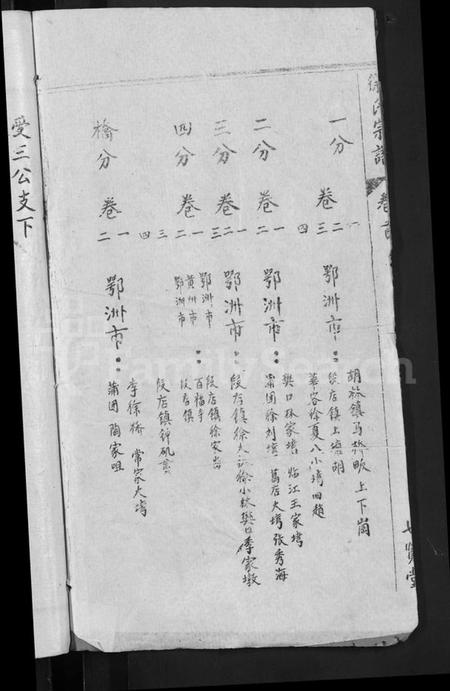 徐氏宗譜 卷首
一分 卷 一 二 三 四 鄂洲市：
胡林鎮馬橋畈 上下崗
段店鎮上
華容徐夏八小塆回趙
二分 卷 一 二 鄂洲市：
樊口林家塆 臨江王家塆
蒲团徐刘塆 葛店大塆張秀海
三分 卷 一 二 三 鄂洲市：
段店鎮徐大 徐小林樊口李家墩
四分 卷 一 二 三 四
鄂洲市：段店鎮徐家
黄州市 百福寺
鄂洲市 段店鎮
段店鎮鈄矾
橋分 卷 一 二 鄂洲市：
李徐橋 常家大塆
蒲团 陶家咀
七賢堂
受三公支下
FamilySearch